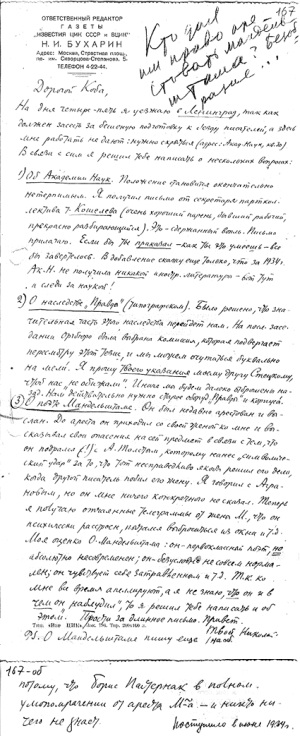 ОТВЕТСТВЕННЫЙ РЕДАКТОР
ГАЗЕТЫ
„ИЗВЕСТИЯ ЦИК СССР и ВЦИК"
Н. И. БУХАРИН
Адрес: Москва, Страстная площ.
ул. им. Скворцова-Степанова, 5
ТЕЛЕФОН 4-22-44.
167
Кто дал
им право аре-
стовать Мандельш-
тама? Безоб-
разие...
Дорогой Коба,
На дня четыре-пять я уезжаю в Ленинград, так как
должен засесть за бешеную подготовку к съезду писателей, а здесь
мне работать не дают: нужно скрыться (адрес: Акад. Наук, кв. 30)
В связи с сим я решил тебе написать о нескольких вопросах:
1) Об Академии Наук. Положение становится окончательно
нетерпимым. Я получил письмо от секретаря парткол-
лектива т. Кошелева (очень хороший парень, бывший рабочий,
прекрасно разбирающийся). Это — сдержанный вопль. Письмо
прилагаю. Если бы ты прикрикнул — как ты это умеешь — все
бы завертелось. В добавление скажу еще только, что за 1934 г.
Ак. Н. не получила никакой иностр. литературы — вот тут
и следи за наукой!
2) О наследстве „Правды" (типографском). Было решено, что зна-
чительная часть этого наследства перейдет нам. На посл. засе-
дании Оргбюро была выбрана комиссия, которая подвергает
пересмотру этот тезис, и мы можем очутиться буквально
на мели. Я прошу твоего указания моему другу Стецкому,
чтоб нас „не обижали". Иначе мы будем далеко отброшены на-
зад. Нам действительно нужно старое оборуд. „Правды" и корпуса.
3) О поэте Мандельштаме. Он был недавно арестован и вы-
слан. До ареста он приходил со своей женой ко мне и вы-
сказывал свои опасения на сей предмет в связи с тем, что
он подрался (!) с А. Толстым, которому нанес „символиче-
ский удар" за то, что тот несправедливо якобы решил его дело,
когда другой писатель побил его жену. Я говорил с Агра-
новым, но он мне ничего конкретного не сказал. Теперь
я получаю отчаянные телеграммы от жены М., что он
психически расстроен, пытался выброситься из окна и т.д.
Моя оценка О. Мандельштама: он — первоклассный поэт, но
абсолютно несовременен; он — безусловно не совсем норма-
лен; он чувствует себя затравленным и т.д. Т.к. ко
мне все время апеллируют, а я не знаю, что он и в
чем он „наблудил", то я решил тебе написать и об
этом. Прости за длинное письмо. Привет.
Твой Николай
P.S. О Мандельштаме пишу еще раз
167-об
потому, что Борис Пастернак в полном
умопомрачении от ареста М-а — и никто ни-
чего не знает.
Поступило в июне 1934 г.